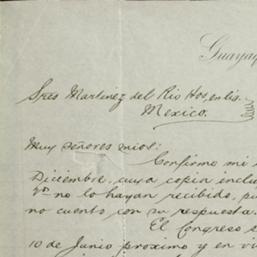 Guayaq
Sres Martinez del Rio Hos, en liq.
Mexico.
Muy Señores mios:
Confirmo mi
Diciembre, cuya copia inclu
no lo hayan recibido, pu
no cuento con su respuesta.
El Congreso
10 de Junio proximo y en vi